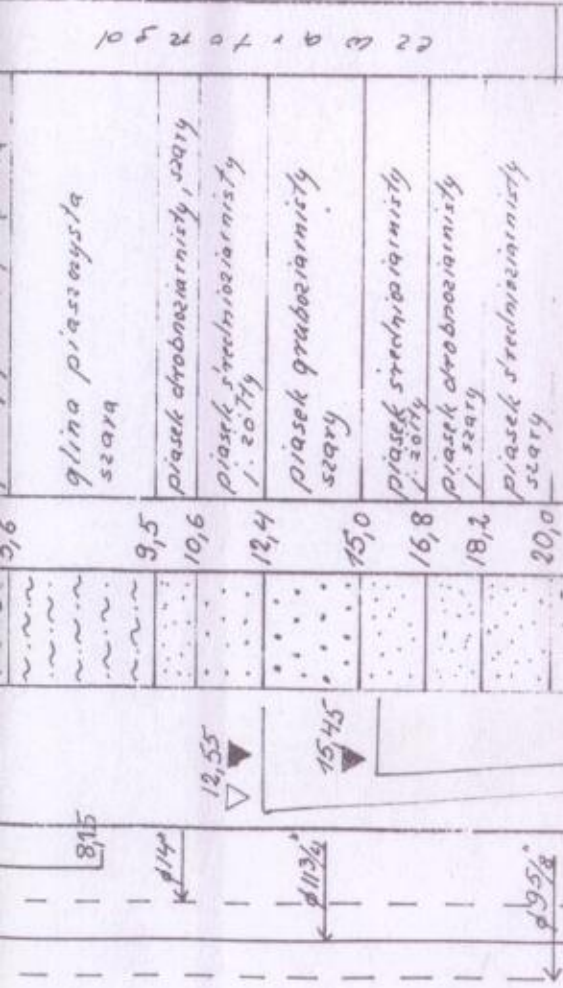 czwartorzęd
glina piaszczysta
szara
piasek drobnoziarnisty, szary
piasek średnioziarnisty
j. żółty
piasek gruboziarnisty
szary
piasek średnioziarnisty
j. żółty
piasek drobnoziarnisty
j. szary
piasek średnioziarnisty
szary
5,6
9,5
10,6
12,4
15,0
16,8
18,2
20,0
12,55
15,45
8,15
ø14"
ø11 3/4"
ø9 5/8"